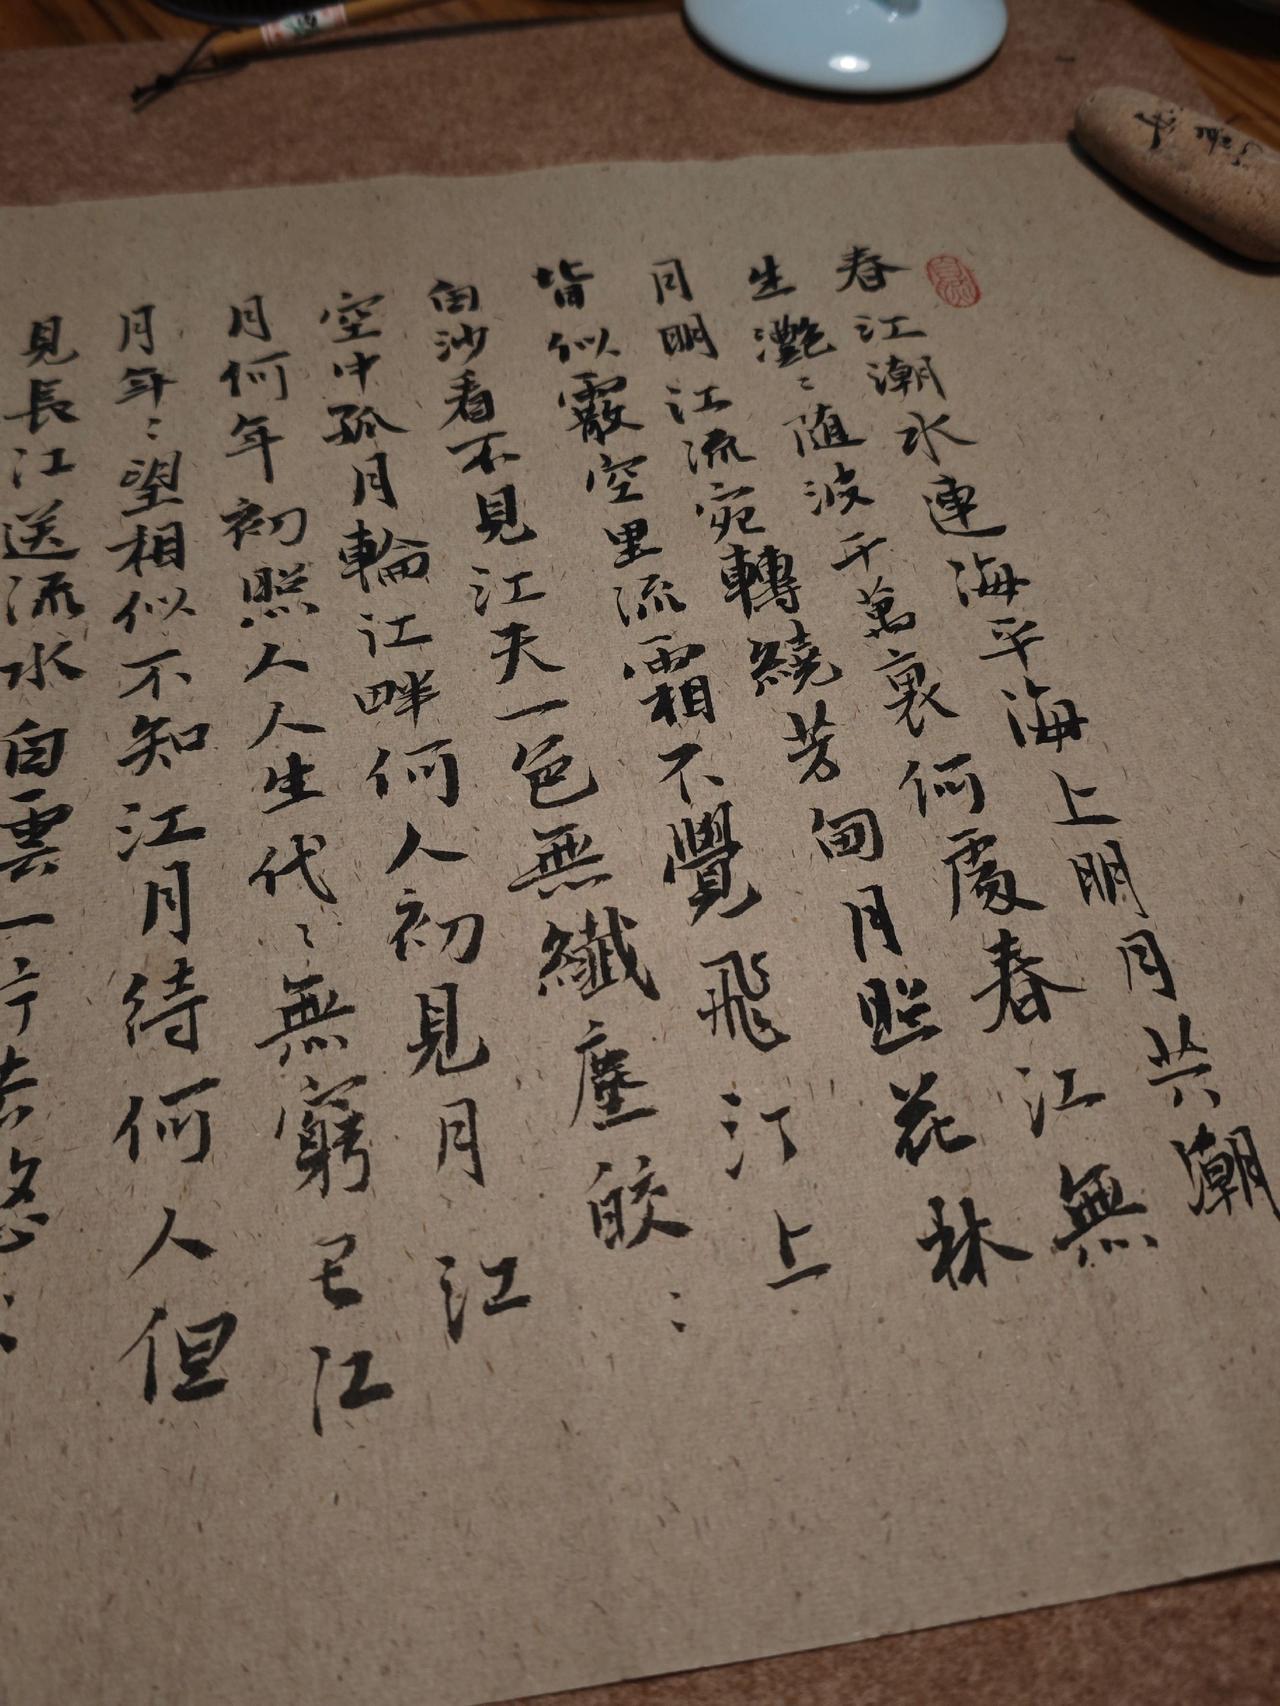 春江潮水連海平海上明月共潮
生灧〻随波千萬裏何處春江無
月明江流宛轉繞芳甸月照花林
皆似霰空里流霜不覺飛汀上
白沙看不見江天一色無纖塵皎〻
空中孤月輪江畔何人初見月江
月何年初照人人生代〻無窮已江
月年〻望相似不知江月待何人但
見長江送流水白雲一片去悠〻